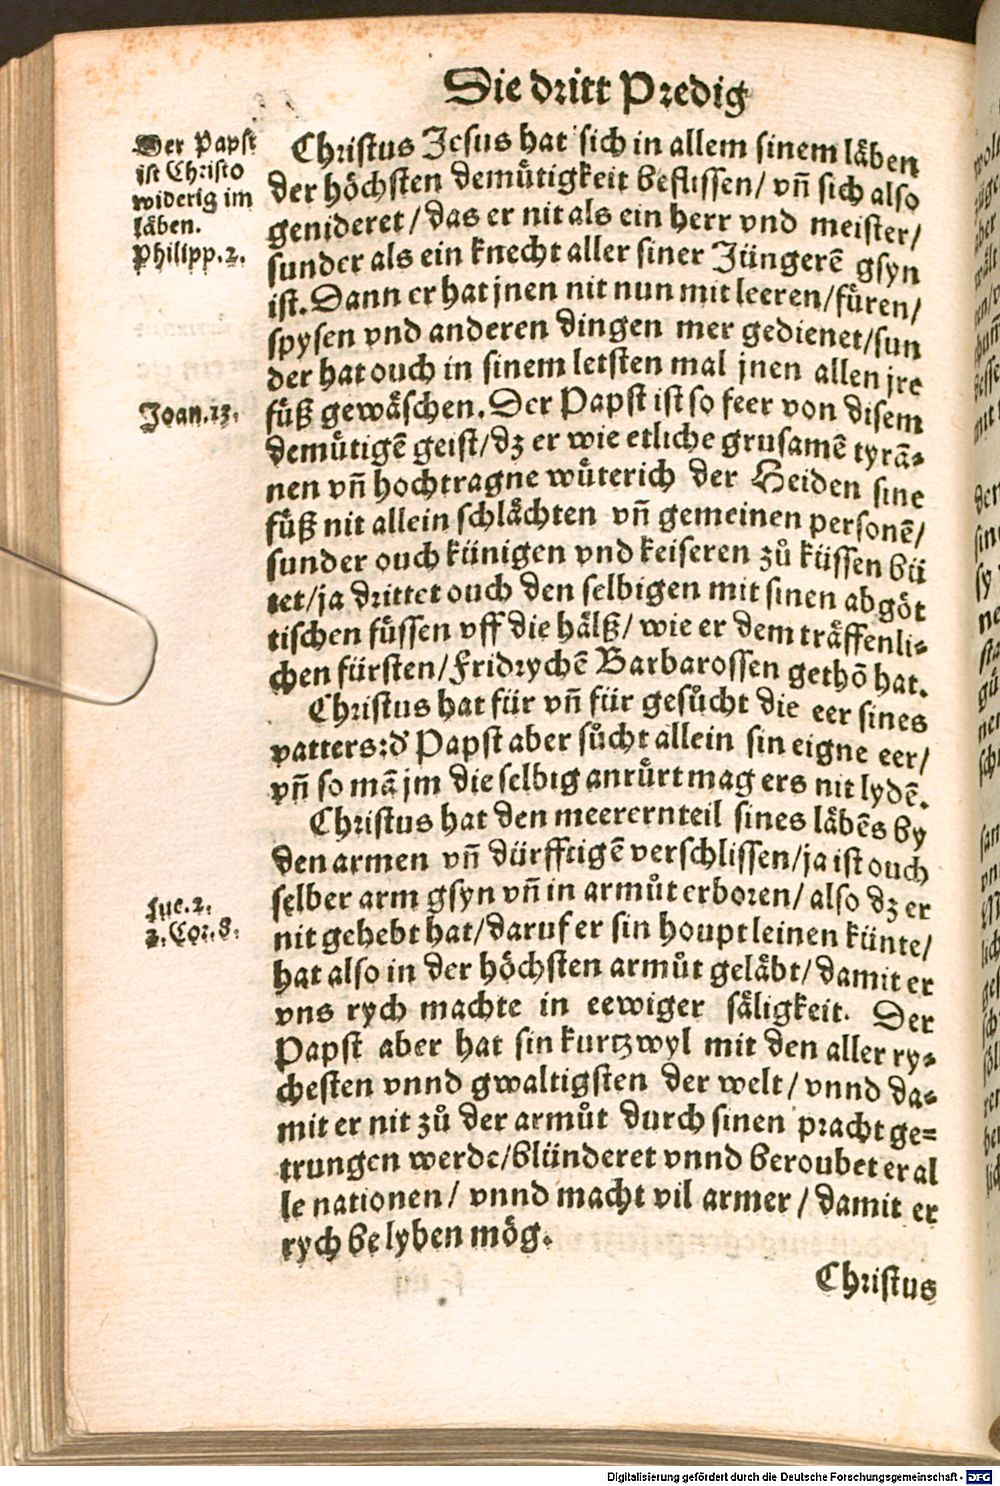 Die dritt Predig
Der Papst
ist Christo
widerig im
läben.
Philipp.2.
Christus Jesus hat sich in allem sinem läben
der höchsten demůtigkeit beflissen/ vñ sich also
genideret/das er nit als ein herr vnd meister/
sunder als ein knecht aller siner Jüngerẽ gsyn
ist. Dann er hat jnen nit nun mit leeren/fůren/
spysen vnd anderen dingen mer gedienet/sun
der hat ouch in sinem letsten mal jnen allen jre
Joan.13.
fůß gewäschen. Der Papst ist so feer von disem
demůtigẽ geist/dz er wie etliche grusamẽ tyrã⸗
nen vñ hochtragne wůterich der Heiden sine
fůß nit allein schlächten vñ gemeinen personẽ/
sunder ouch künigen vnd keiseren zů küssen bü
tet/ja drittet ouch den selbigen mit sinen abgöt
tischen fůssen vff die hälß/ wie er dem träffenli⸗
chen fürsten/Fridrychẽ Barbarossen gethõ hat.
Christus hat für vñ für gesůcht die eer sines
vatters:d' Papst aber sůcht allein sin eigne eer/
vñ so mã jm die selbig anrůrt mag ers nit lydẽ.
Christus hat den meerern teil sines läbẽs by
den armen vñ dürfftigẽ verschlissen/ja ist ouch
Luc.2.
2.Cor.8.
selber arm gsyn vñ in armůt erboren/ also dz er
nit gehebt hat/daruf er sin houpt leinen künte/
hat also in der höchsten armůt geläbt/damit er
vns rych machte in eewiger säligkeit. Der
Papst aber hat sin kurtzwyl mit den aller ry⸗
chesten vnnd gwaltigsten der welt/ vnnd da⸗
mit er nit zů der armůt durch sinen pracht ge⸗
trungen werde/blünderet vnnd beroubet er al
le nationen/ vnnd macht vil armer/damit er
rych belyben mög.
Christus
Digitalisierung gefördert durch die Deutsche Forschungsgemeinschaft - DFG